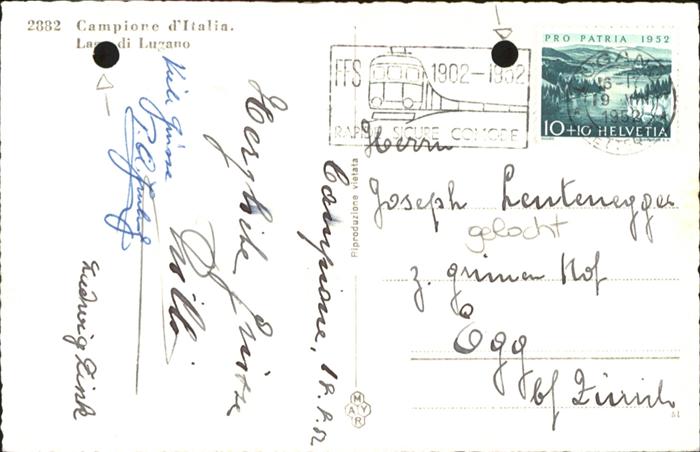 2882 Campione d'Italia.
Lago di Lugano
Viele Grüsse
Herzliche Grüsse
Willi
Ludwig Fink
Campione, 18.8.52
Riproduzione vietata
MAYR
FFS 1902-1952
RAPIDE SICURE COMODE
PRO PATRIA 1952
10+10 HELVETIA
1952
Herrn
Joseph Lentenegger
gelocht
z. grünen Hof
Egg
bf Zürich